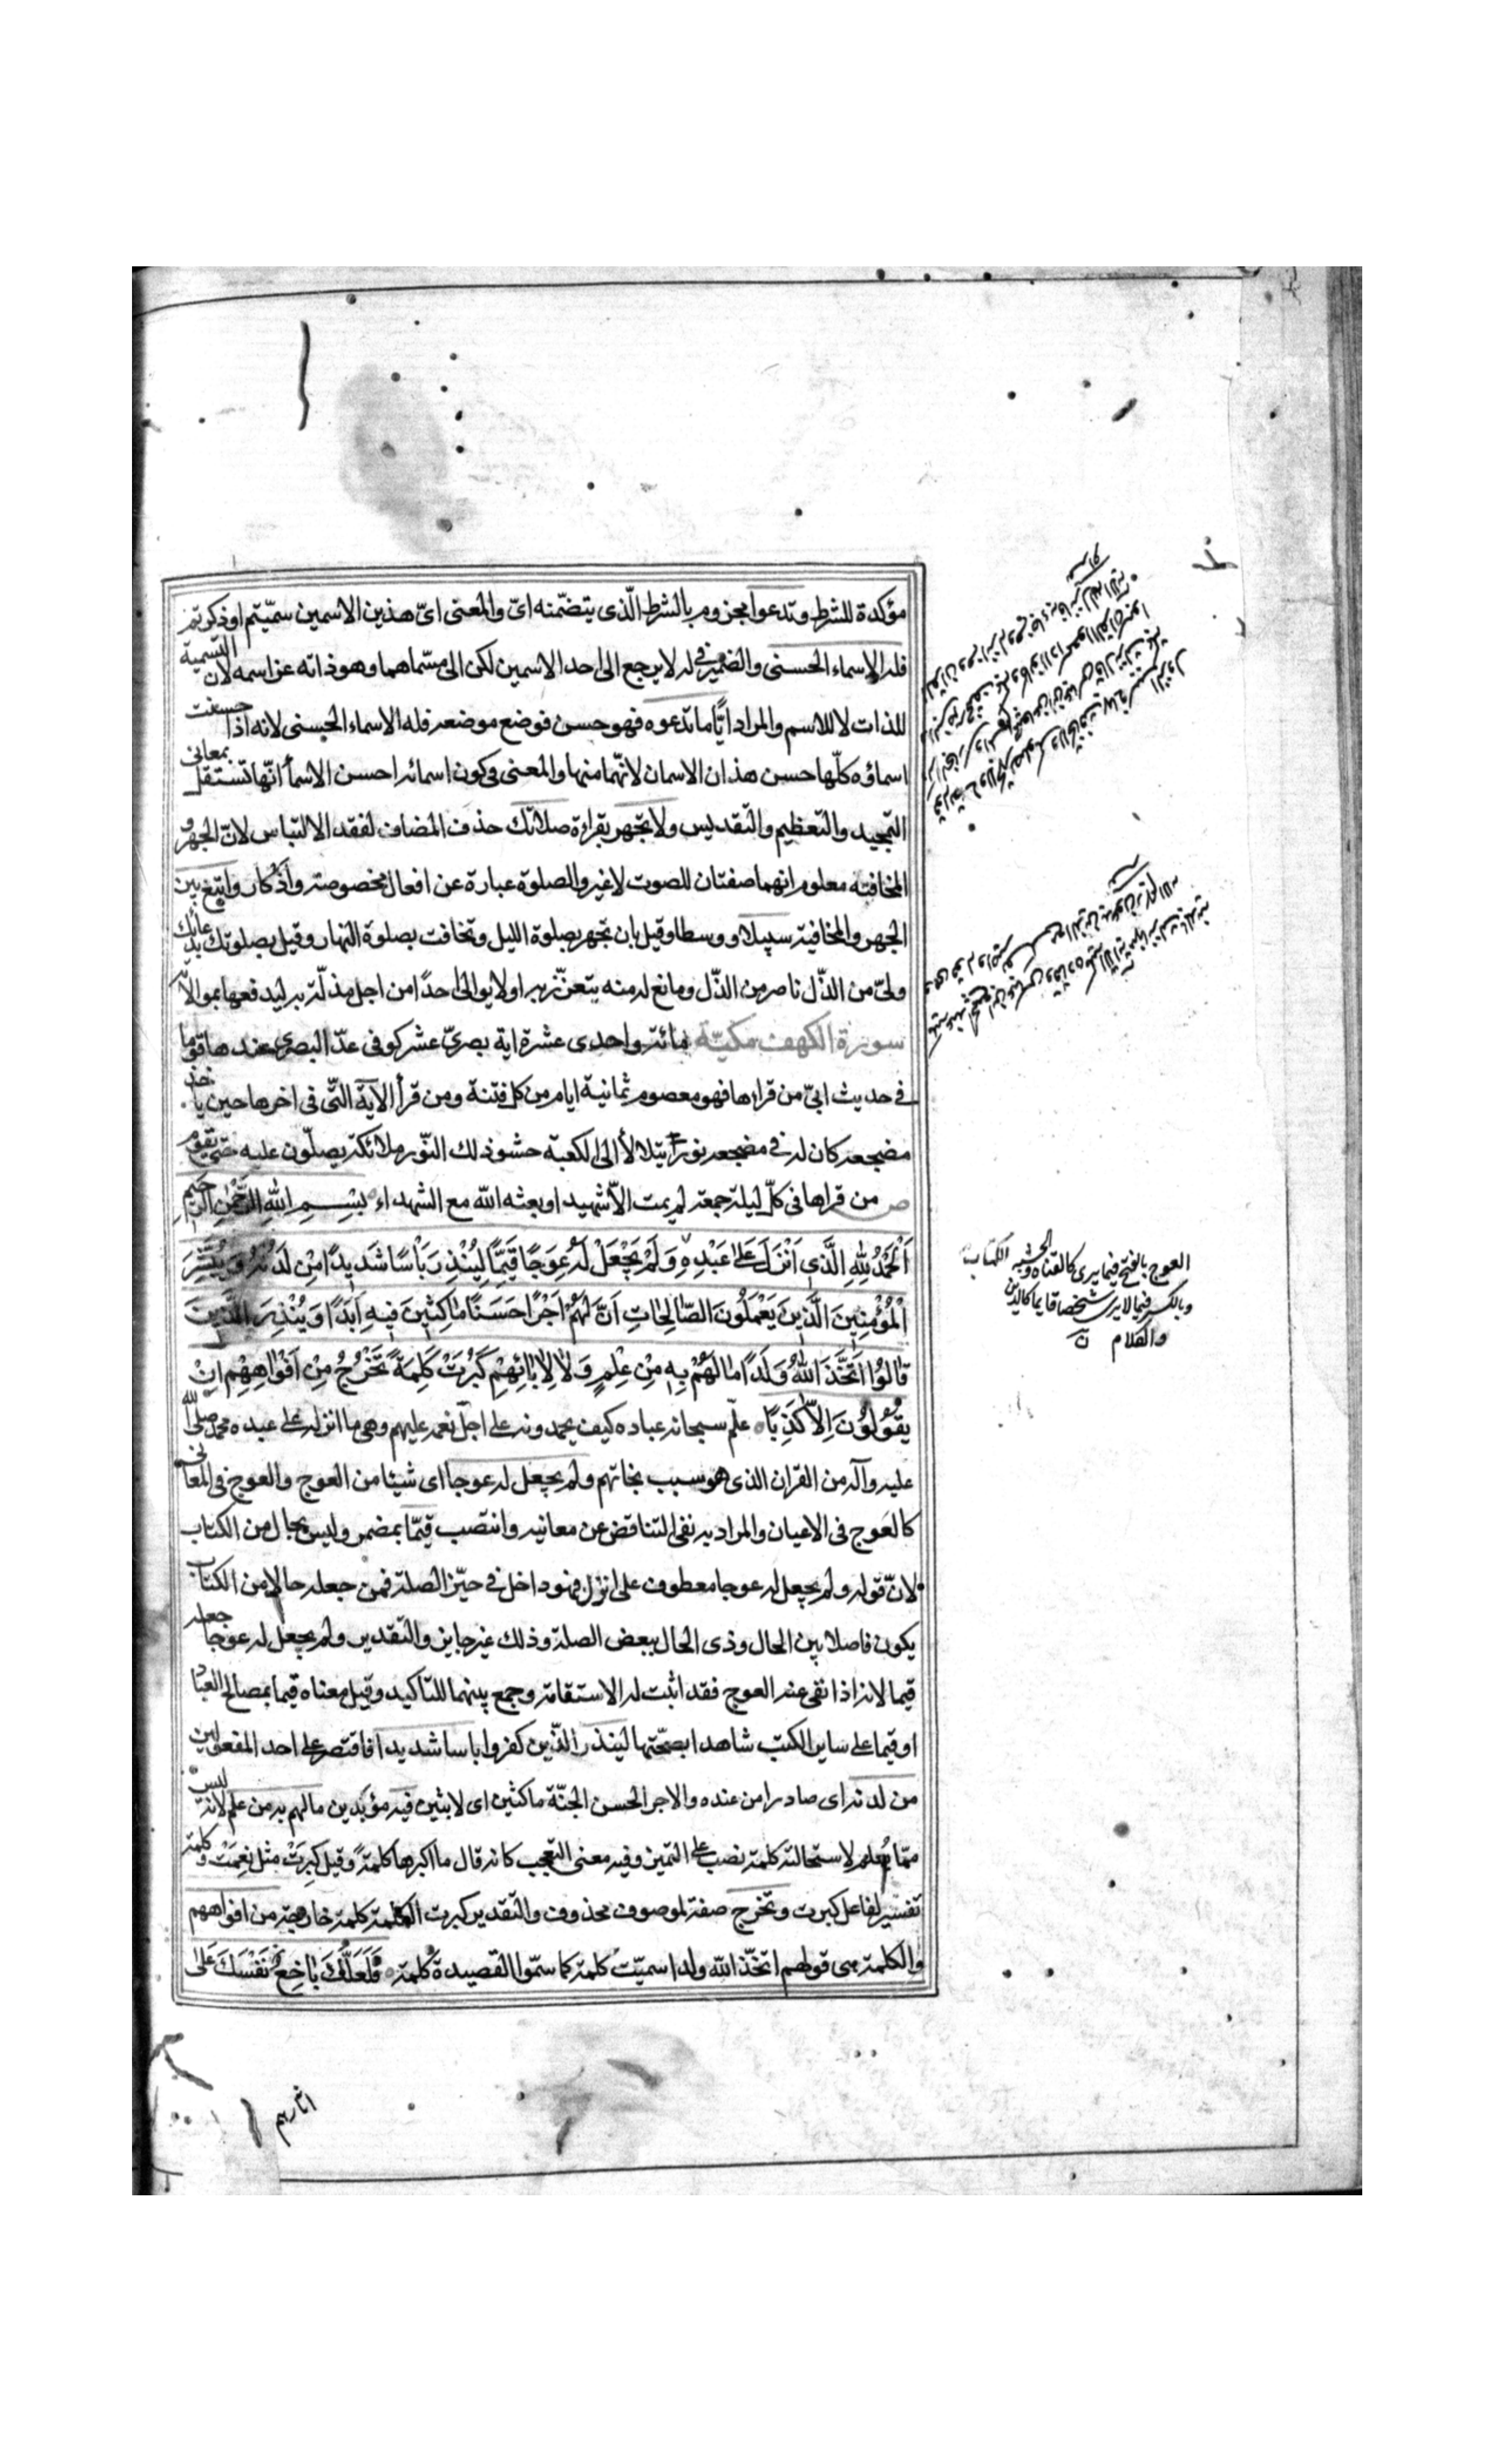 مؤكدة للشرط وتدعوا مجزوم بالشرط الّذى يتضمّنه اىّ والمعنى اىّ هذين الاسمين سمّيتم او ذكرتم
فله الاسماء الحسنى والضمير فى له لا يرجع الى احد الاسمين لكن الى مسمّاهما وهو ذاته عزّ اسمه لانّ التسمية
للذات لا للاسم والمراد ايًّا ما تدعوه فهو حسن فوضع موضعه فله الاسماء الحسنى لانه اذا حسنت
اسماؤه كلّها حسن هذان الاسمان لانّهما منها والمعنى فى كون اسمائه احسن الاسماء انّها تستقلّ بمعانى
التمجيد والتعظيم والتقديس ولا تجهر بقراءة صلاتك حذف المضاف لفقد الالتباس لانّ الجهر و
المخافتة معلوم انهما صفتان للصوت لا غير والصلوة عبارة عن افعال مخصوصة واذكار وابتغ بين
الجهر والمخافتة سبيلا ووسطا وقيل بان تجهر بصلوة الليل وتخافت بصلوة النهار وقيل بصلوتك بدعائك
ولىّ من الذّل ناصر من الذّل ومانع له منه يتعزّز به او لا يوالى احدًا من اجل مذلّة به ليدفعها بموالاته
سورة الكهف مكيّة مائة واحدى عشرة اية بصرىّ عشر كوفى عدّ البصرى عندها قوما
فى حديث ابىّ من قراها فهو معصوم ثمانية ايام من كل فتنة ومن قرأ الآية التّى فى اخرها حين ياخذ
مضجعه كان له فى مضجعه نور يتلالأ الى الكعبة حشو ذلك النّور ملائكة يصلّون عليه حتى يقوم
ص من قراها فى كلّ ليلة جمعة لم يمت الاّ شهيد او بعثه الله مع الشهداء بِسْمِ اللهِ الرَّحْمٰنِ الرَّحِيمِ
اَلْحَمْدُ لِلّٰهِ الَّذى اَنْزَلَ عَلٰى عَبْدِهِ وَلَمْ يَجْعَلْ لَهُ عِوَجًا قَيِّمًا لِيُنْذِرَ بَأْسًا شَدِيدًا مِنْ لَدُنْهُ وَيُبَشِّرَ
الْمُؤْمِنِينَ الَّذِينَ يَعْمَلُونَ الصَّالِحَاتِ اَنَّ لَهُمْ اَجْرًا حَسَنًا مَاكِثِينَ فِيهِ اَبَدًا وَيُنْذِرَ الَّذِينَ
قَالُوا اتَّخَذَ اللهُ وَلَدًا مَا لَهُمْ بِهِ مِنْ عِلْمٍ وَلَا لِاٰبَائِهِمْ كَبُرَتْ كَلِمَةً تَخْرُجُ مِنْ اَفْوَاهِهِمْ اِنْ
يَقُولُونَ اِلاَّ كَذِبًا علّم سبحانه عباده كيف يحمدونه على اجلّ نعمه عليهم وهى ما انزله على عبده محمد صلى الله
عليه وآله من القران الذى هو سبب نجاتهم ولم يجعل له عوجا اى شيئا من العوج والعوج فى المعانى
كالعَوج فى الاعيان والمراد به نفى التناقض عن معانيه وانتصب قيّمًا بمضمر وليس بحال من الكتاب
لانّ قوله ولم يجعل له عوجا معطوف على انزل فهو داخل فى حيّز الصلة فمن جعله حالا من الكتاب
يكون فاصلا بين الحال وذى الحال ببعض الصلة وذلك غير جايز والتقدير ولم يجعل له عوجا جعله
قيما لانه اذا نفى عنه العوج فقد اثبت له الاستقامة وجمع بينهما للتاكيد وقيل معناه قيما بمصالح العباد
او قيما على ساير الكتب شاهدا بصحّتها لينذر الذّين كفروا باسا شديدا فاقتصر على احد المفعولين
من لدنه اى صادرا من عنده والاجر الحسن الجنّة ماكثين اى لابثين فيه مؤبّدين ما لهم به من علم لانه ليس
ممّا يُعلم لاستحالته كلمة نصب على التميز وفيه معنى التعجب كانه قال ما اكبرها كلمةً وقيل كبرَت مثل نِعْمَت وكلمة
تفسير لفاعل كبرت وتخرج صفة لموصوف محذوف والتقدير كبرت الكلمة كلمة خارجة من افواههم
والكلمة هى قولهم اتخّذ الله ولدا سميّت كلمة كما سمّوا القصيدة كلمة فَلَعَلَّكَ بَاخِعٌ نَفْسَكَ عَلٰى
العوج بالفتح فيما يرى كالقناة والخشبة
وبالكسر فيما لا يرى شخصا قايما كالدين
والكلام
اثارهم